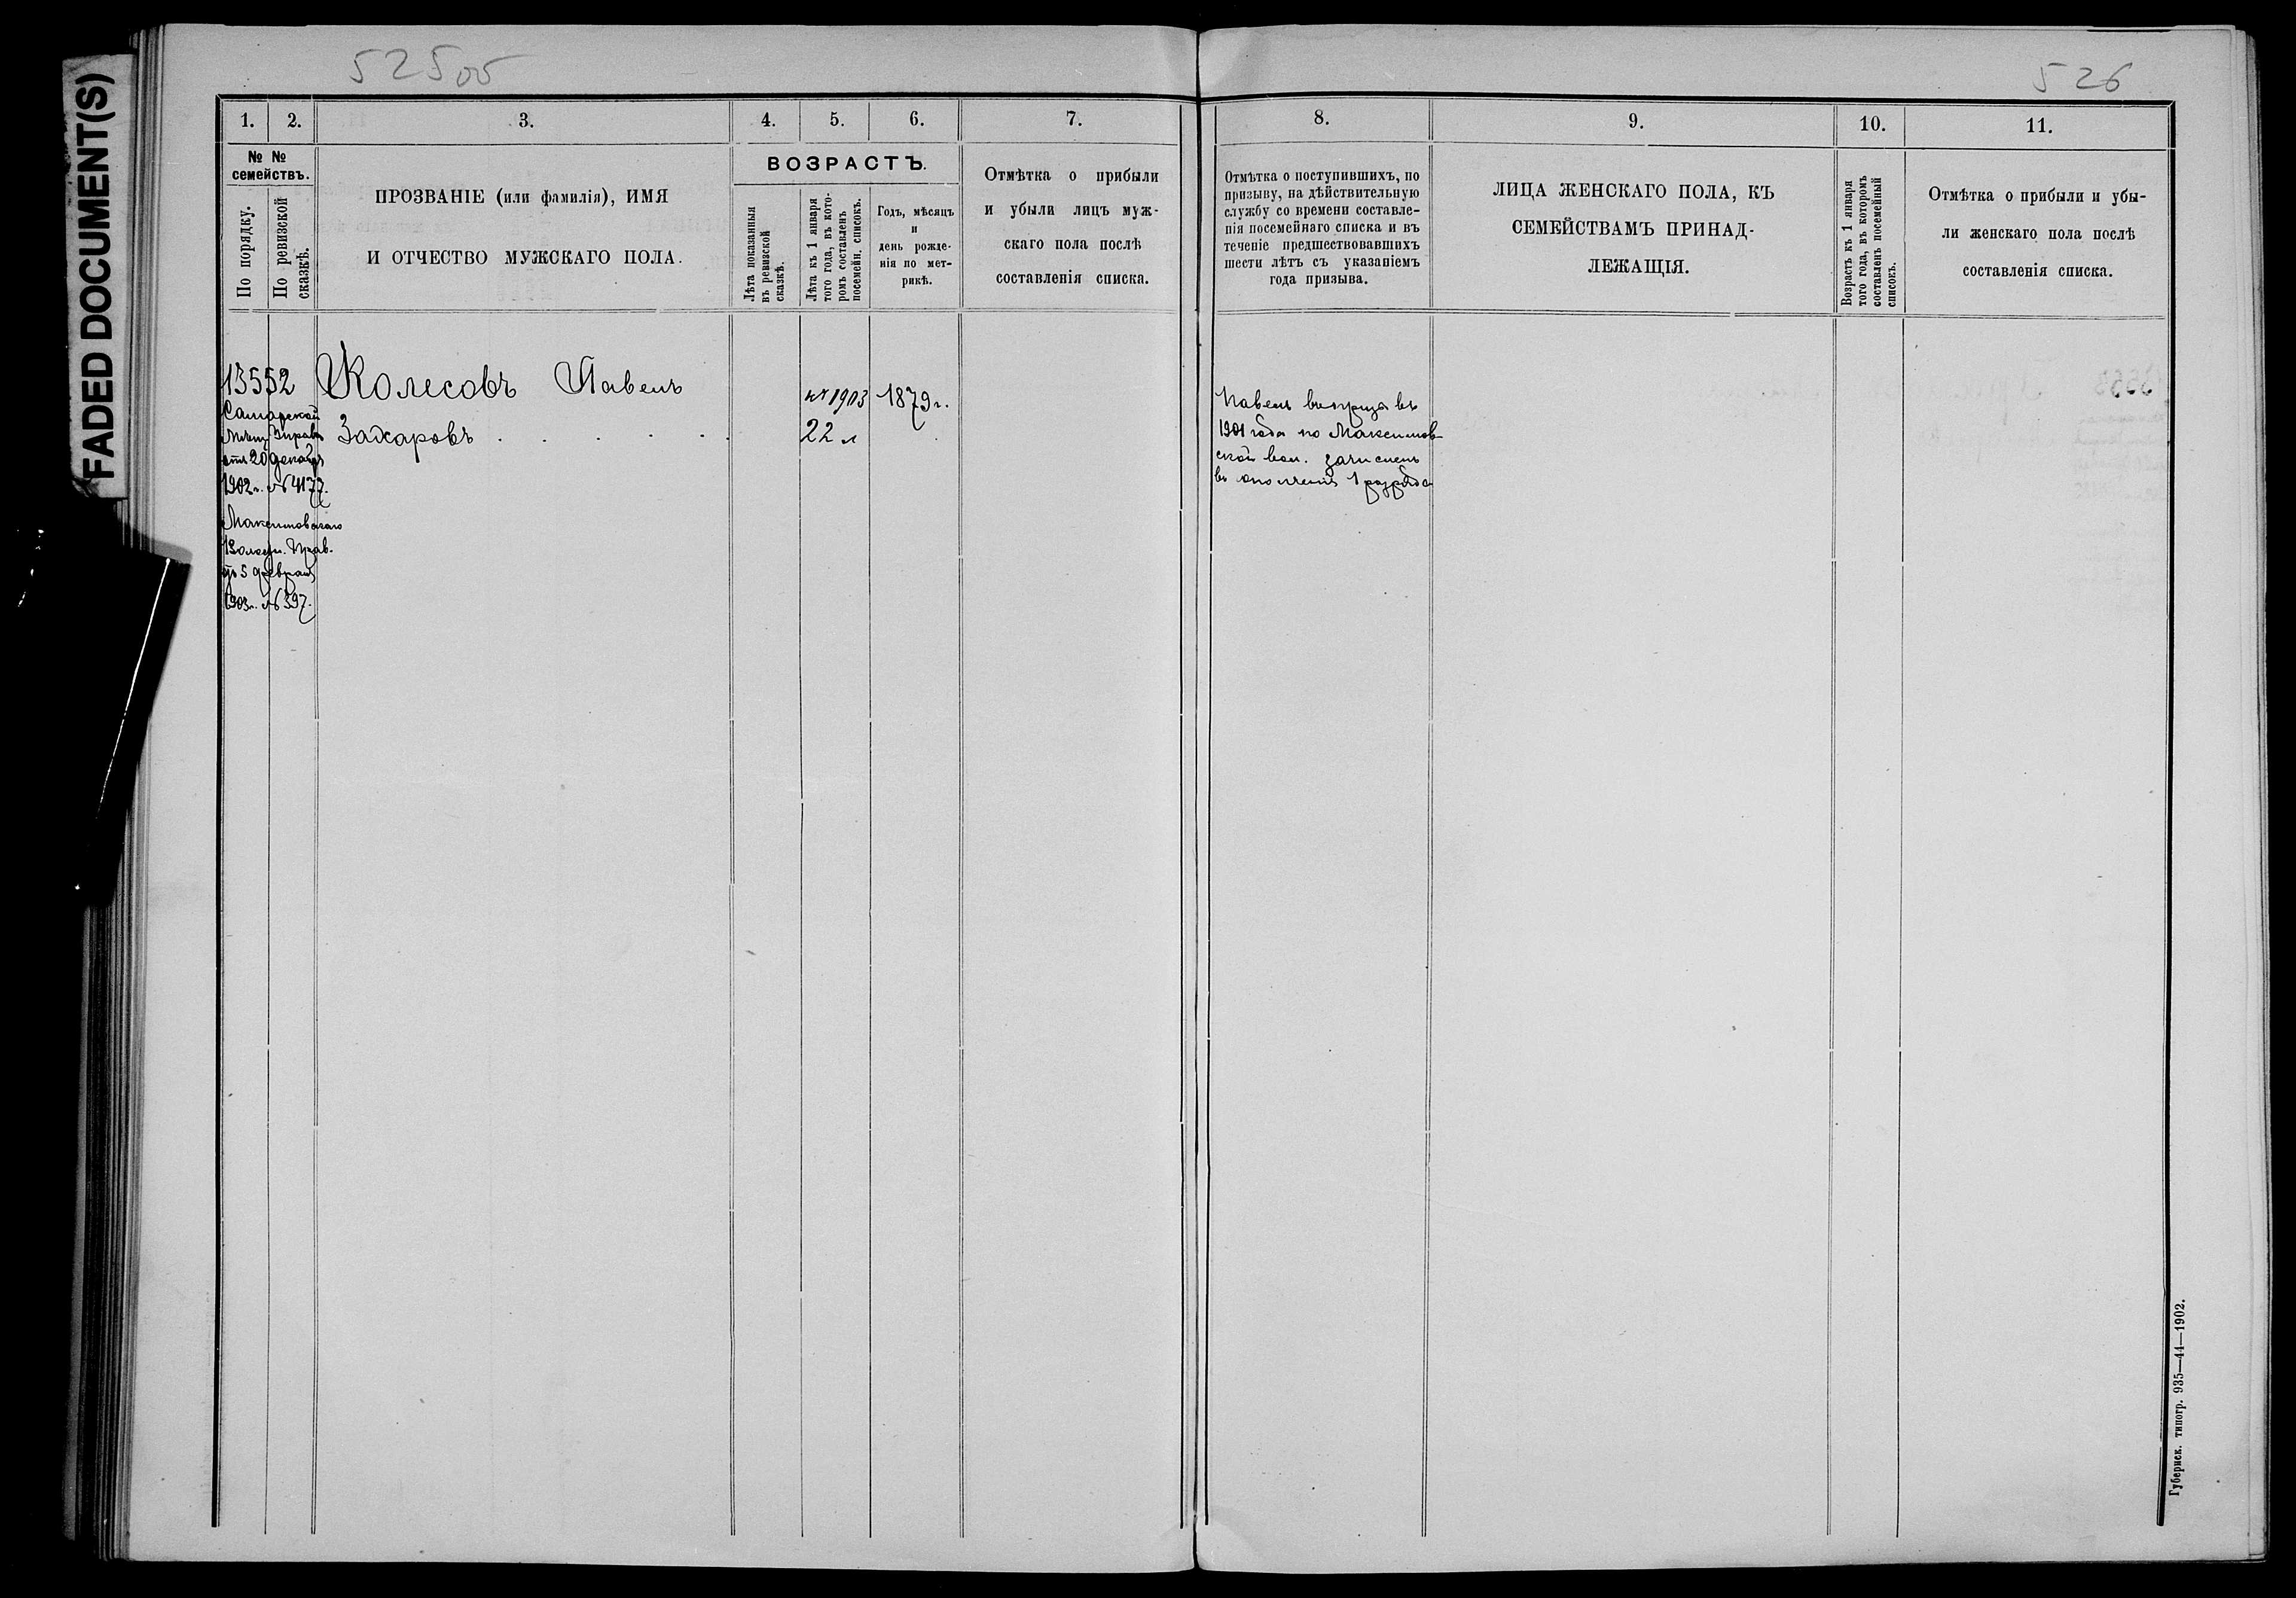 FADED DOCUMENT(S)
525об
526
1.
2.
3.
4.
5.
6.
7.
8.
9.
10.
11.
№ №
семействъ.
По порядку.
По ревизской
сказкѣ.
ПРОЗВАНІЕ (или фамилія), ИМЯ
И ОТЧЕСТВО МУЖСКАГО ПОЛА.
ВОЗРАСТЪ.
Лѣта показанныя
въ ревизской
сказкѣ.
Лѣта къ 1 января
того года, въ кото-
ромъ составленъ
посемейн. списокъ.
Годъ, мѣсяцъ
и
день рожде-
нія по мет-
рикѣ.
Отмѣтка о прибыли
и убыли лицъ муж-
скаго пола послѣ
составленія списка.
Отмѣтка о поступившихъ, по
призыву, на дѣйствительную
службу со времени составле-
нія посемейнаго списка и въ
теченіе предшествовавшихъ
шести лѣтъ съ указаніемъ
года призыва.
ЛИЦА ЖЕНСКАГО ПОЛА, КЪ
СЕМЕЙСТВАМЪ ПРИНАД-
ЛЕЖАЩІЯ.
Возрастъ къ 1 января
того года, въ которомъ
составленъ посемейный
списокъ.
Отмѣтка о прибыли и убы-
ли женскаго пола послѣ
составленія списка.
13552
Самарской
Мѣщ. Управы
отъ 20 декабря
1902 г. № 4177.
Максимовскаго
Волостн. Прав.
отъ 5 февраля
1903 г. № 397.
Колесовъ Павелъ
Захаровъ . . . . .
къ 1903
22 л
1879 г.
Павелъ въ призывъ
1901 года по Максимов-
ской вол. зачисленъ
въ ополченіе 1 разряда
Губернск. типогр. 935—44—1902.